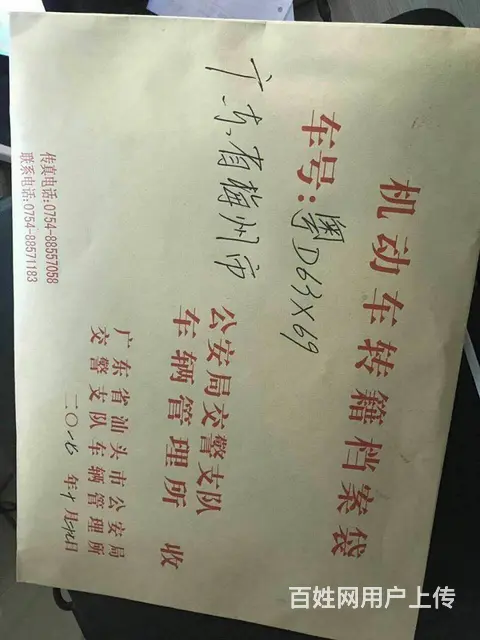 机动车转籍档案袋
车号:粤D63X69
广东省梅州市
公安局交警支队
车辆管理所 收
广东省汕头市公安局
交警支队车辆管理所
年十月
传真电话:0754-88557058
联系电话:0754-88571183
百姓网用户上传